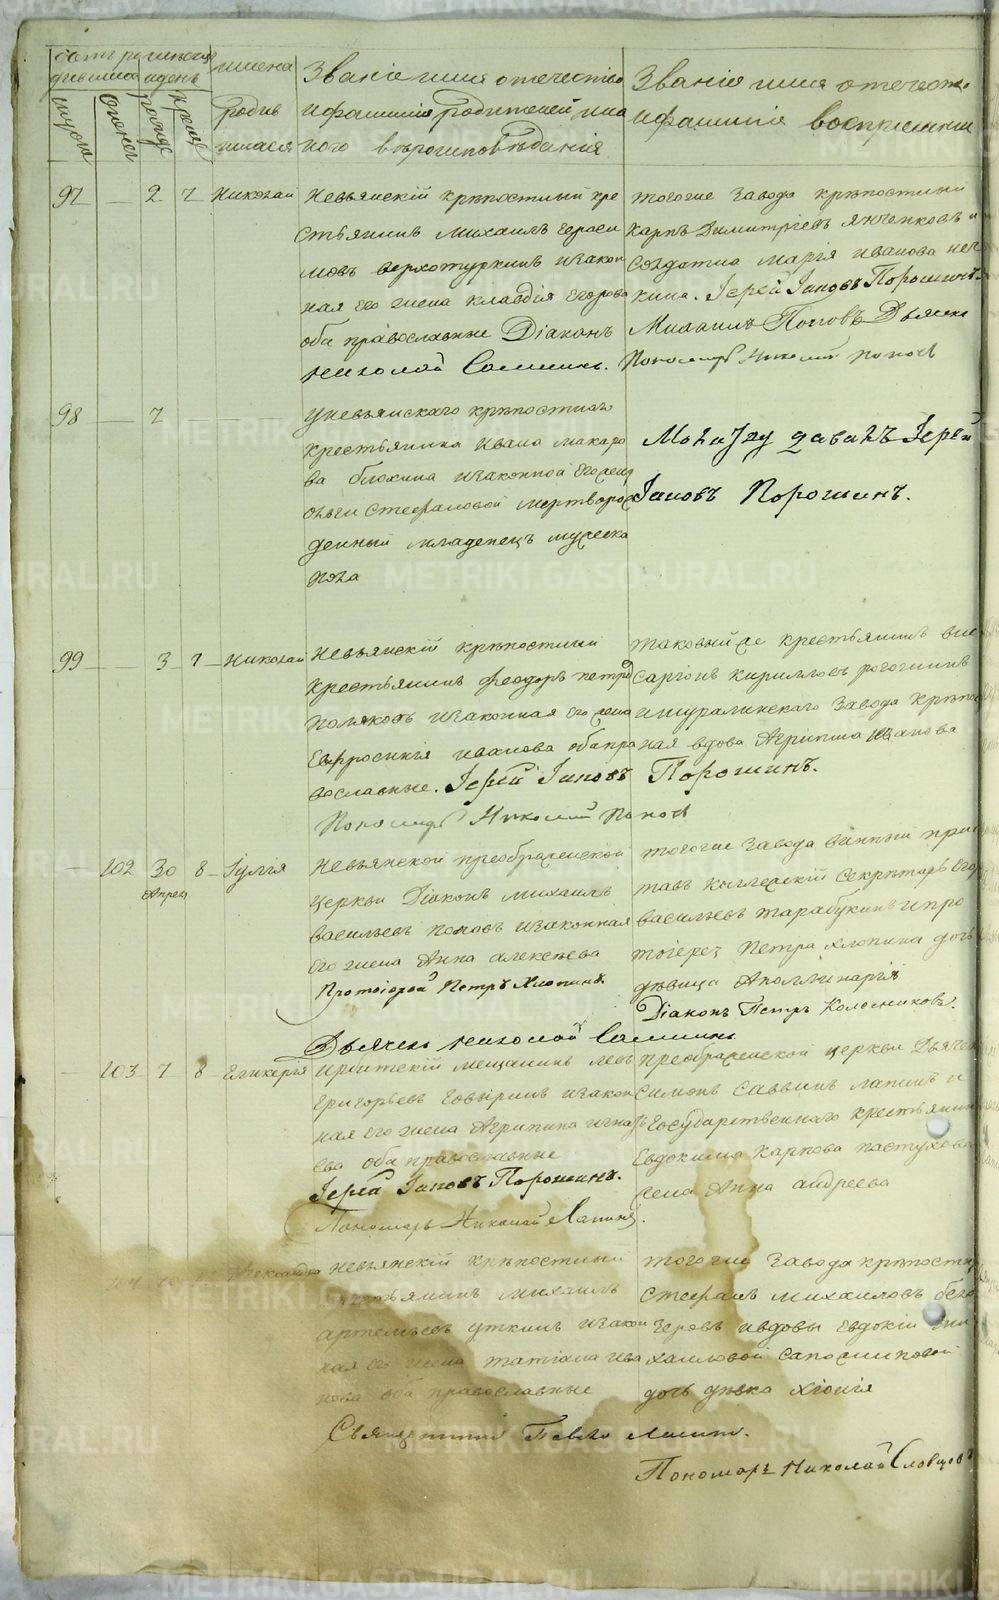 имена
Званіе имя отечество
Званіе имя отечест
родив
ифамилія родителей ика
ифамиліи воспріемни
шися
кого вѣроисповѣданія
мужска
женск
рожде
креще
97 — 2 7 Николай
Невьянскій крѣпостный кре
стьянинъ михаилъ Гераси
мовъ верхотуркинъ изакон
ная его жена клавдія Егорова
оба православные Діаконъ
николай
тогоже завода крѣпостный
Карпъ Димитріевъ Янченковъ и
солдатка марія иванова
Іерей Іаковъ Порошинъ.
Михаилъ Поповъ Дьячекъ
Пономарь Николай Попов
98 — 7 —
уневьянскаго крѣпостнаго
крестьянина ивана макаро
ва блохина изаконной его жены
ольги стефановой мертворож
денный младенецъ мужеска
пола
Могилу давалъ Іерей
Іаковъ Порошинъ.
99 — 3 7 — Николай
Невьянскій крѣпостный
крестьянинъ феодоръ петров
Поляковъ изаконная его жена
Евфросинія иванова оба пра
вославные. Іерей Іаковъ Порошинъ.
Пономарь Николай Попов
таковыйже крестьянинъ вис
саріонъ кирилловъ рогожинъ
ишуралинскаго завода крѣпос
ная вдова Агрипина иванова
— 102 30 8 — Іулія
Апрѣл
Невьянской преображенской
церкви Діаконъ михаилъ
васильевъ поповъ изаконная
его жена Анна алексѣева
Протоіерей Петръ Хлопинъ
тогоже завода винный при
ставъ коллежскій секретарь Егор
васильевъ тарабукинъ ипро
тоіерея Петра хлопина дочь
дѣвица Аполлинарія
Діаконъ Петръ Колесниковъ.
Дьячекъ николай
— 103 7 8 Гликерія
ирбитскій мещанинъ левъ
григорьевъ изакон
ная его жена Агрипина игнать
ева оба православные
Іерей Іаковъ Порошинъ.
Пономарь Николай Лапинъ.
преображенской церкви Дьячек
симонъ саввинъ лапинъ и
Государственнаго крестьянина
Евдокима Карпова пастухова
жена Анна андреева
Александра
Невьянскій крѣпостный
крестьянинъ михаилъ
артемьевъ уткинъ изакон
ная его жена татіана ива
нова оба православные
Священникъ
тогоже завода крѣпостн
стефанъ михаиловъ
ивдовы евдокіи ми
хаиловой сапожниковой
дочь дѣвка хіонія
Пономарь Николай Словцовъ
METRIKI.GASO-URAL.RU